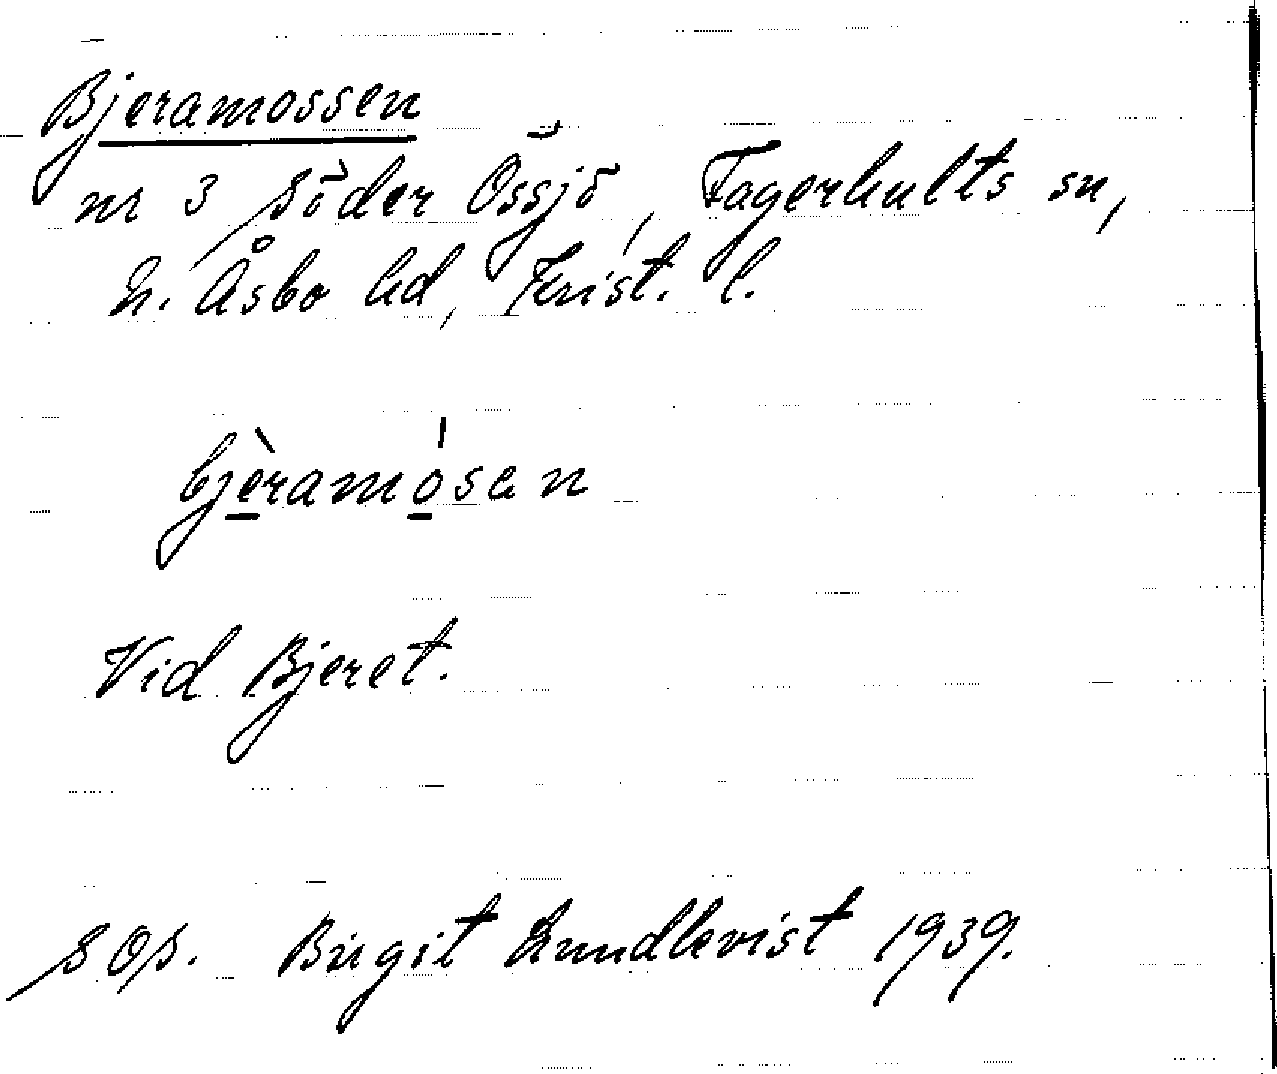 Bjeramossen
nr 3 Söder Össjö, Fagerhults sn,
N. Åsbo hd, Krist. l.
bjèramósen
Vid Bjeret.
SOS. Birgit Lundkvist 1939.